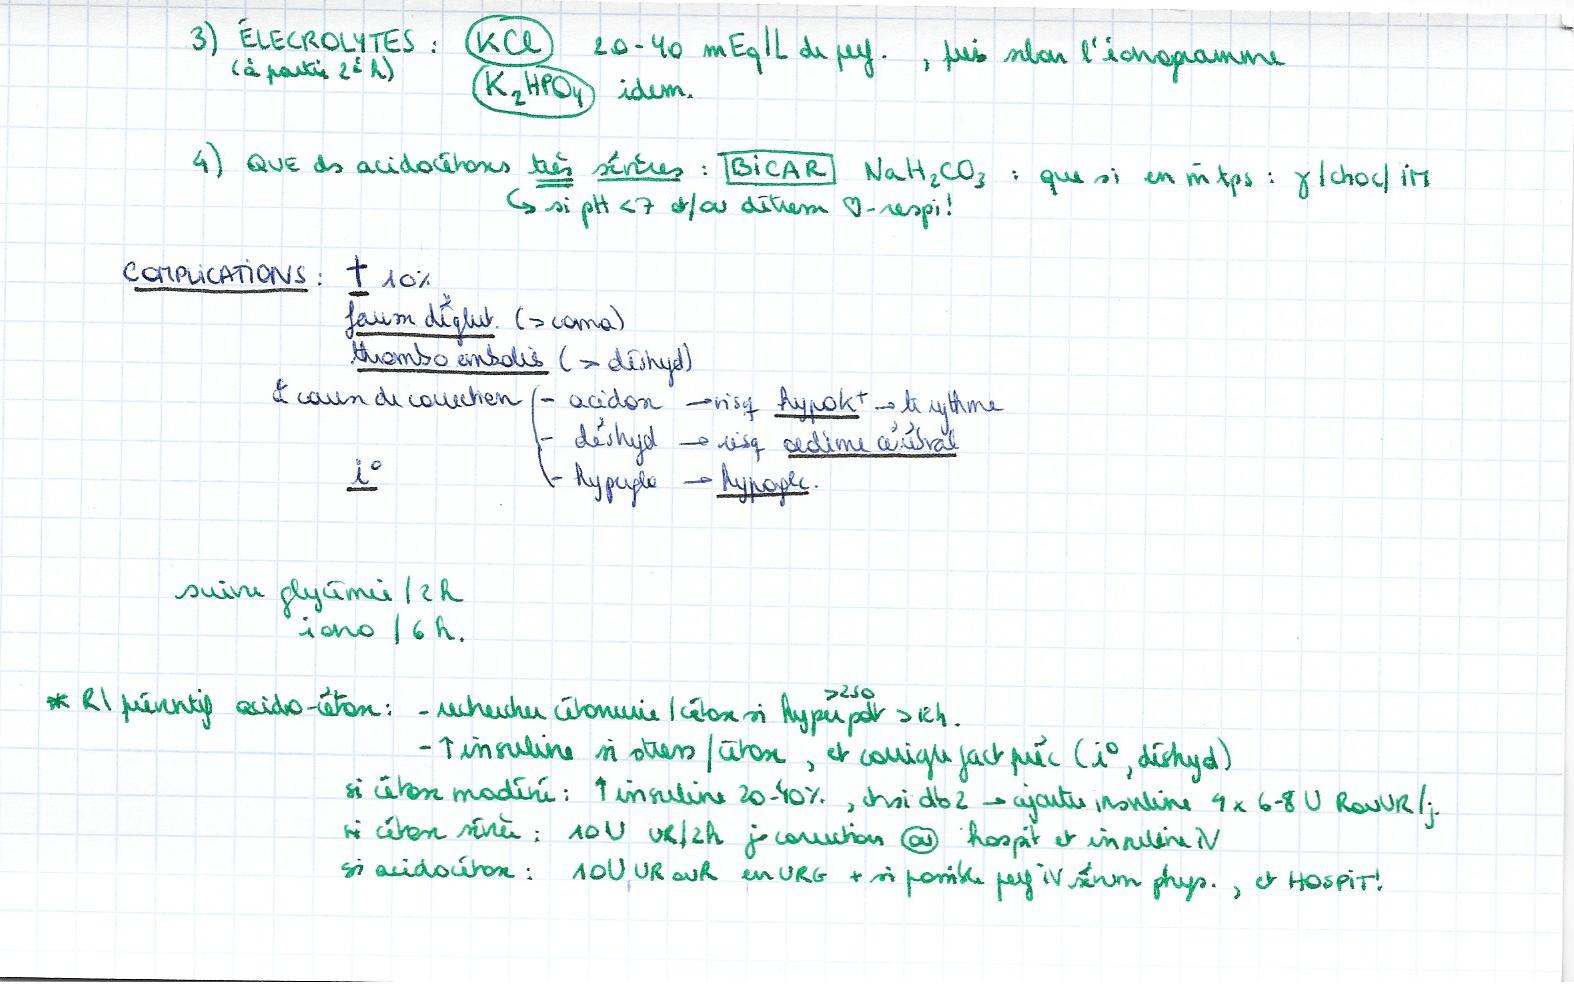 3) ÉLECROLYTES : KCl 20-40 mEq/L de perf. , puis selon l'ionogramme
(à partir 2è h)
K2HPO4 idem.
4) QUE ds acidocétoses très sévères : BiCAR NaH2CO3 : que si en m̄ tps : γ/choc/iM
↳ si pH <7 et/ou détresse ♡-respi!
COMPLICATIONS : † 10%
fausse déglut. (> coma)
thrombo embolie (> déshyd)
à cause de correction - acidose → risq hypoK+ → tr rythme
- déshyd → risq oedème cérébral
i° - hyperglc → hypoglc.
suivre glycémie /2h
iono /6h.
* R\ préventif acido-cétose : - rechercher cétonurie/cétose si hyper pdt > 12h.
>250
- ↑ insuline si stress/cétose , et corriger fact préc (i°, déshyd)
si cétose modérée : ↑ insuline 20-40% , et si db 2 → ajouter insuline 4 x 6-8 U R ou UR /j.
si cétose sévère : 10U UR/2h jq correction ou hospit et insuline iV
si acidocétose : 10U UR ou R en URG + si possible perf iV sérum phys. , et HOSPiT!